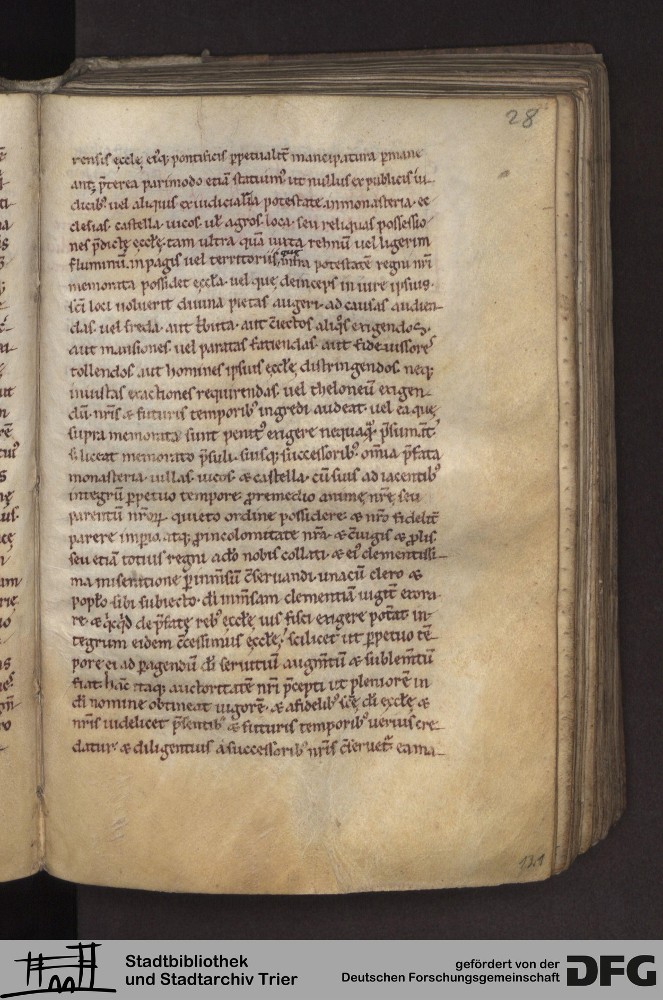 28
rensis ęcclę eiusq; pontificis ppetualit̄ mancipatura pmane
ant; p̄terea parimodo etiā statuim᾿ ut nullus ex publicis iu
dicib; uel aliquis ex iudiciaria potestate in monasteria ęc
clesias castella uicos ul᾿ agros loca seu reliquas possessio
nes p̄dictę ęcclę tam ultra quā iuxta rehnū uel ligerim
fluminū in pagis uel territoriis quę infra potestatē regni nr̄i
memorata possidet ęcc̄la uel quę deinceps in iure ipsius
sc̄i loci uoluerit diuina pietas augeri ad causas audien
das uel freda aut tributa aut c̄iectos aliq̄s exigendos
aut mansiones uel paratas faciendas aut fideiussores
tollendos aut homines ipsius ęcclę distringendos neq;
iniustas exactiones requirendas uel theloneū exigen
dū nr̄is & futuris temporib; ingredi audeat uel ea quę
supra memorata sunt penit᾿ exigere nequaq̄ p̄sumat
s; liceat memorato p̄suli suisq; successorib; om̄ia p̄fata
monasteria uillas uicos & castella cū suis adiacentib;
integrū ppetuo tempore p remedio animę nr̄ę seu
parentū nr̄oꝝ quieto ordine possidere & nr̄o fidelit̄
parere impio atq; p incolomitate nr̄a & c̄iugis & plis
seu etiā totius regni a dō nobis collati & ei᾿ clementissi
ma miseratione p inm̄sū c̄seruandi unacū clero &
poplo sibi subiecto dī inm̄sam clementiā iugit̄ exora
re & qͥcqͥd de p̄fatę reb; ęcclę ius fisci exigere pot̄at in
tegrum eidem c̄cessimus ęcclę scilicet ut ppetuo tē
pore ei ad pagendū dī seruitiū augm̄tū & sublem̄tū
fiat hanc itaq; auctoritatē nr̄i p̄cepti ut pleniorē in
dī nomine obtineat uigorē & a fidelib; sc̄ę dī ęcclę &
nr̄is uidelicet p̄sentib; & futuris temporib; uerius cre
datur & diligentius a successorib; nr̄is c̄seruet᾿ ea ma
121
Stadtbibliothek
und Stadtarchiv Trier
gefördert von der
Deutschen Forschungsgemeinschaft
DFG